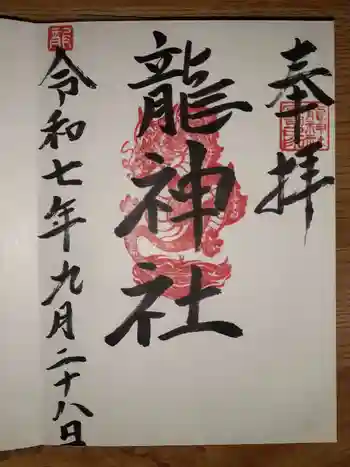 奉拝
龍神社
令和七年九月二十八日
龍